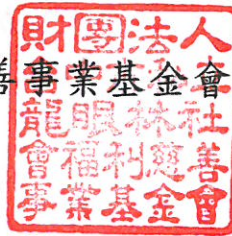 善事業基金會
財團法人
龍眼林社
會福利慈善
事業基金會